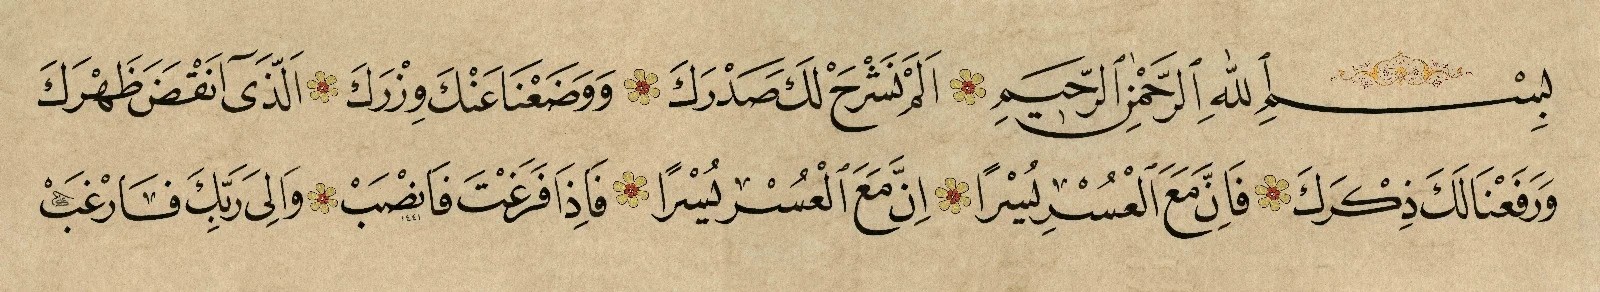 بِسْمِ ٱللّٰهِ ٱلرَّحْمٰنِ ٱلرَّحِيمِ اَلَمْ نَشْرَحْ لَكَ صَدْرَكَ وَوَضَعْنَا عَنْكَ وِزْرَكَ اَلَّذٓى اَنْقَضَ ظَهْرَكَ
وَرَفَعْنَا لَكَ ذِكْرَكَ فَاِنَّ مَعَ ٱلْعُسْرِ يُسْرًا اِنَّ مَعَ ٱلْعُسْرِ يُسْرًا فَاِذَا فَرَغْتَ فَانْصَبْ ١٤٤١ وَاِلٰى رَبِّكَ فَارْغَبْ